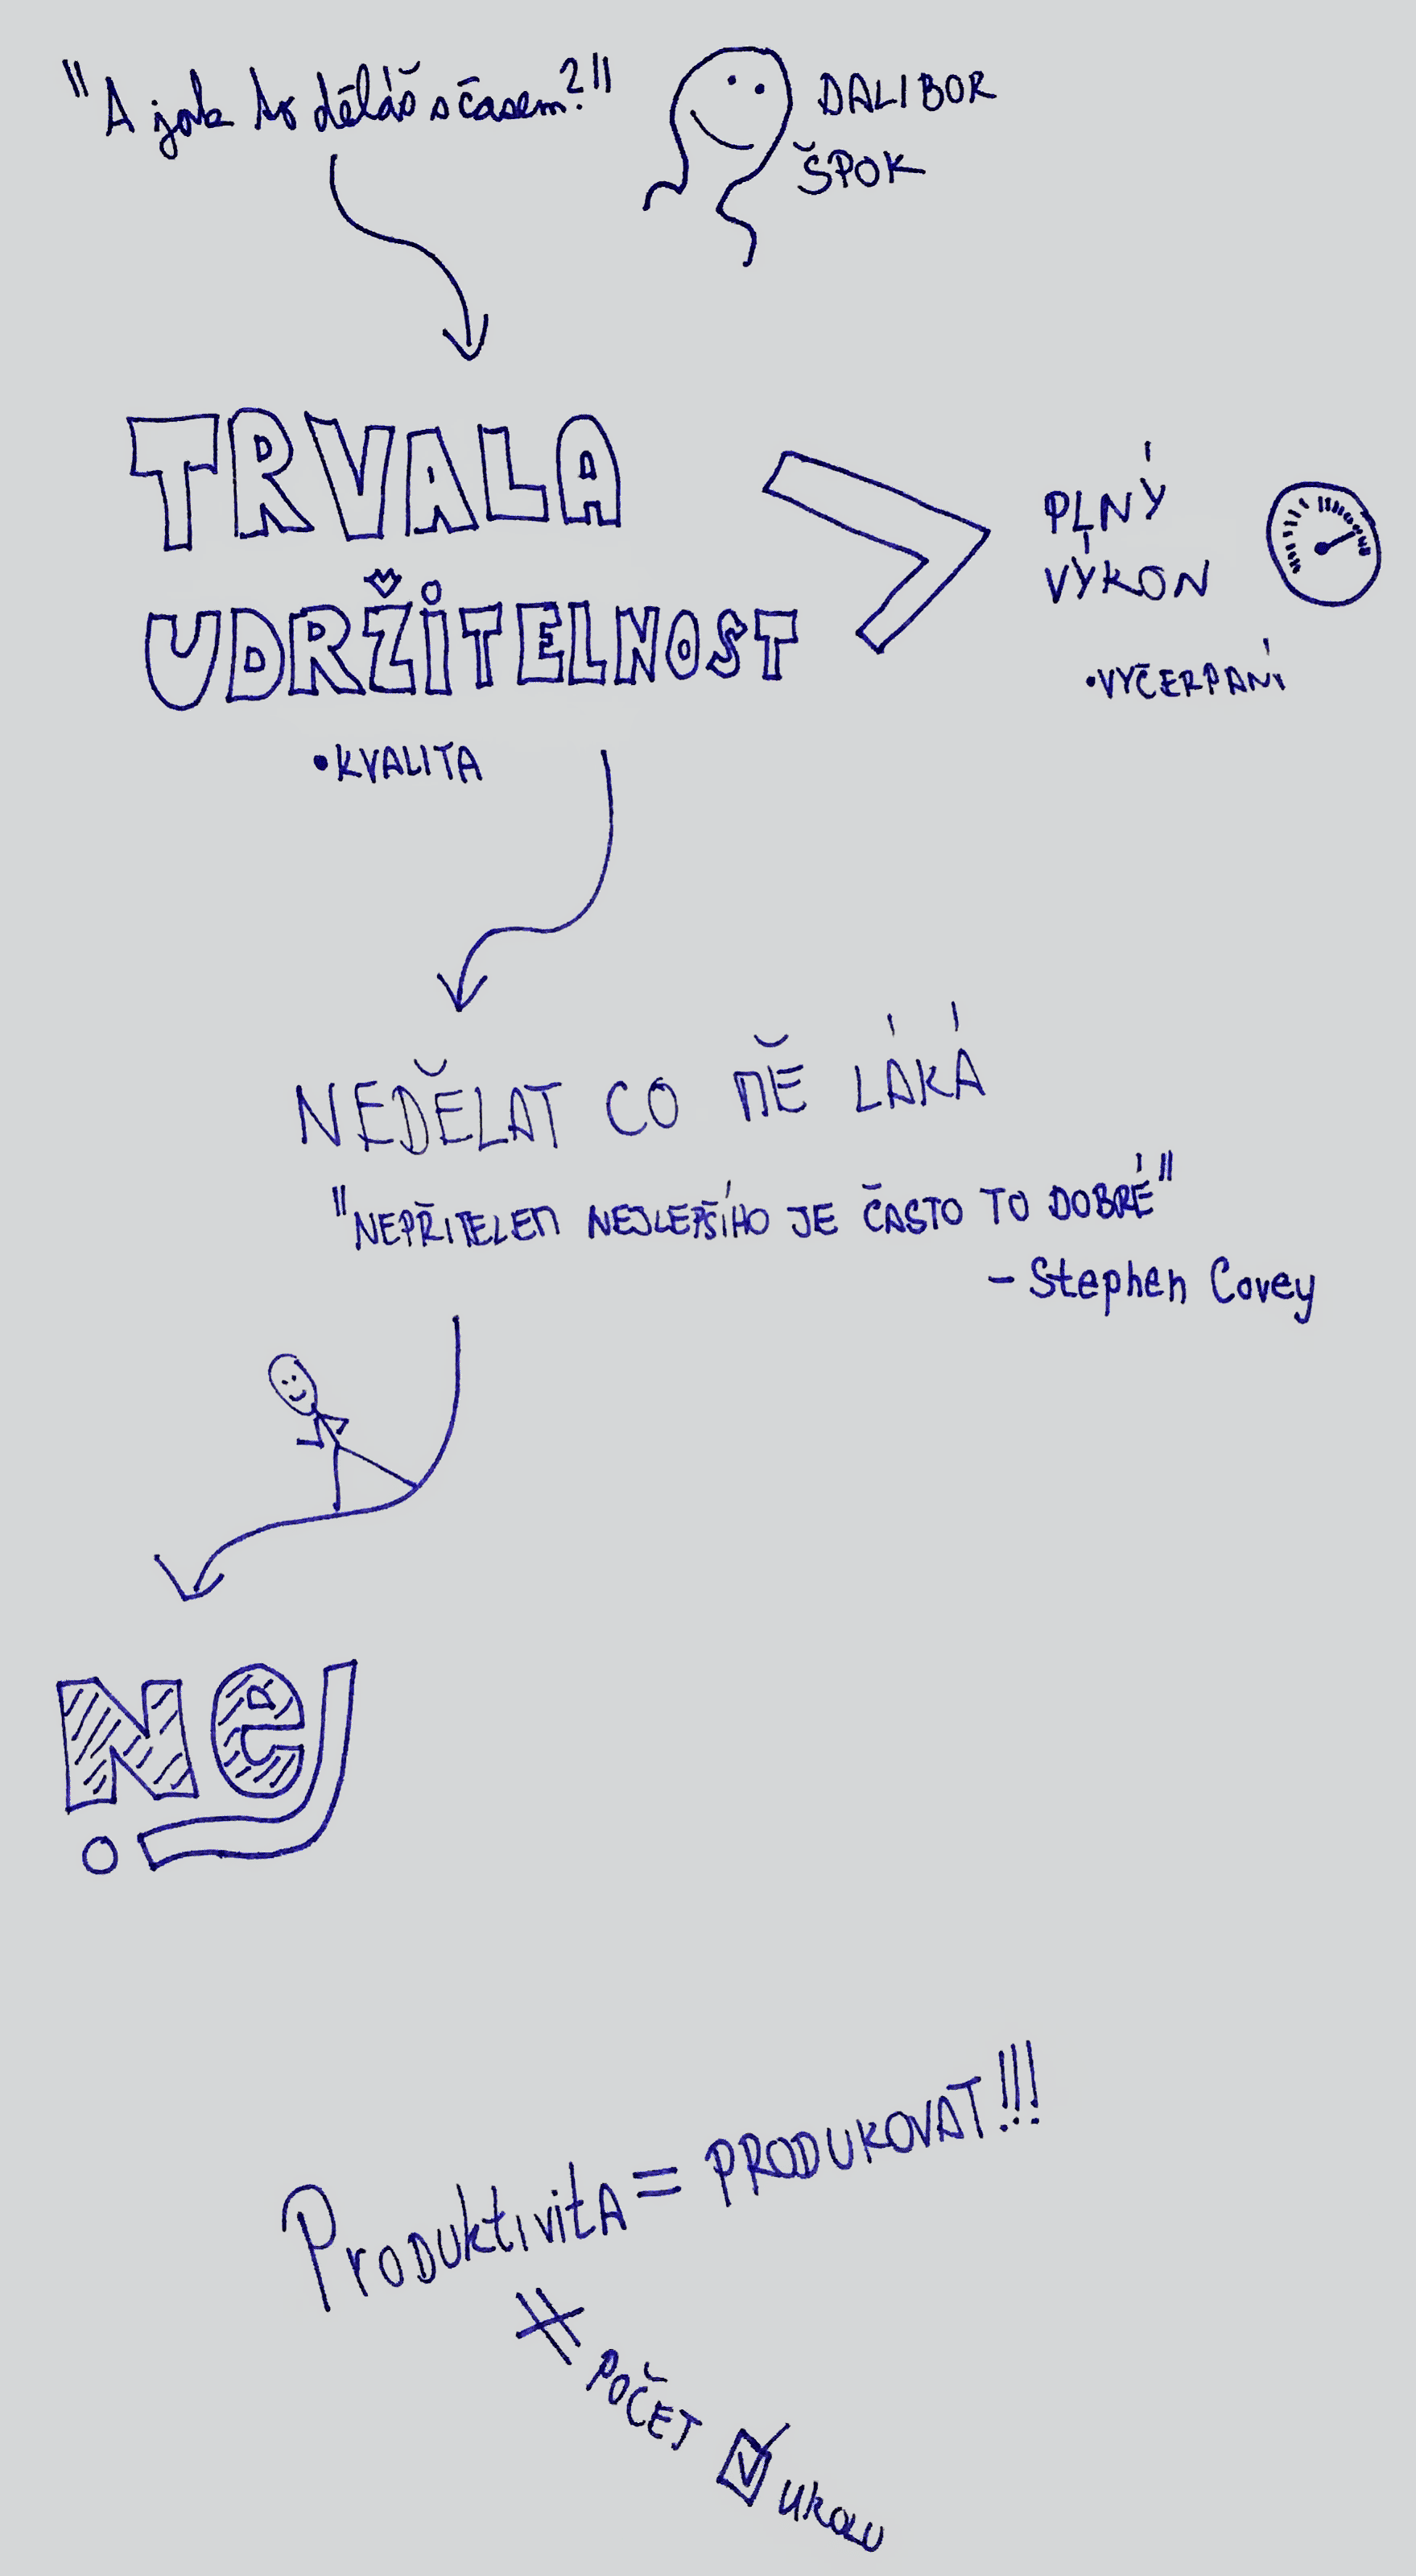 "A jak to děláš s časem?"
DALIBOR
ŠPOK
TRVALA
UDRŽITELNOST
>
PLNÝ
VÝKON
•VYČERPANÍ
•KVALITA
NEDĚLAT CO MĚ LÁKÁ
"NEPŘITELEM NEJLEPŠÍHO JE ČASTO TO DOBRÉ"
- Stephen Covey
Nej
ProduktivitA = PRODUKOVAT!!!
≠ POČET ☑